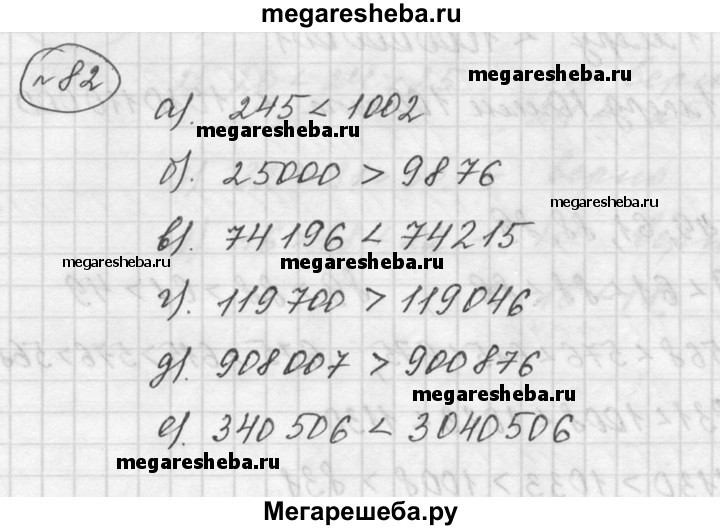 megaresheba.ru
№82
megaresheba.ru
а). 245 < 1002
megaresheba.ru
б). 25000 > 9876
в). 74196 < 74215
megaresheba.ru
megaresheba.ru
г). 119700 > 119046
д). 908007 > 900876
megaresheba.ru
е). 340506 < 3040506
megaresheba.ru
Мегарешеба.ру